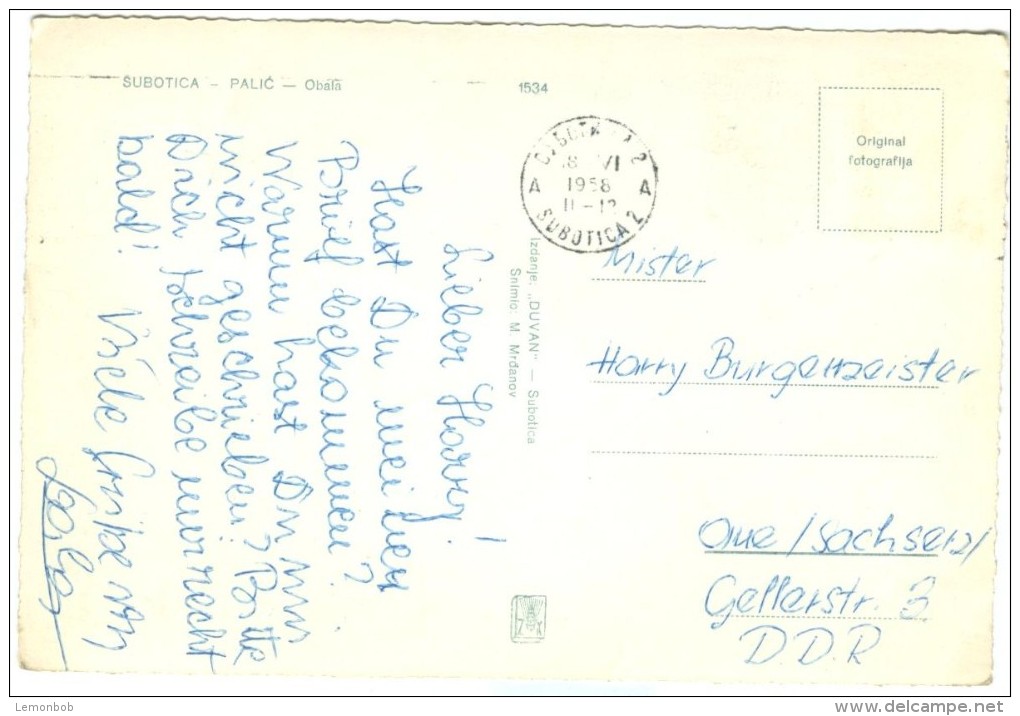 SUBOTICA – PALIĆ — Obala
1534
Original
fotografija
СУБОТИЦА 2
8 VI
1958
11-12
A A
SUBOTICA 2
Izdanje: „DUVAN" — Subotica
Snimio: M. Mrđanov
Lieber Harry!
Hast Du meinen
Brief bekommen?
Warum hast Du mir
nicht geschrieben? Bitte
Dich schreibe mir recht
bald!
Viele Grüße von
Mister
Harry Burgemeister
Aue/Sachsen/
Gellerstr. 3
D.D.R
Lemonbob
www.delcampe.net